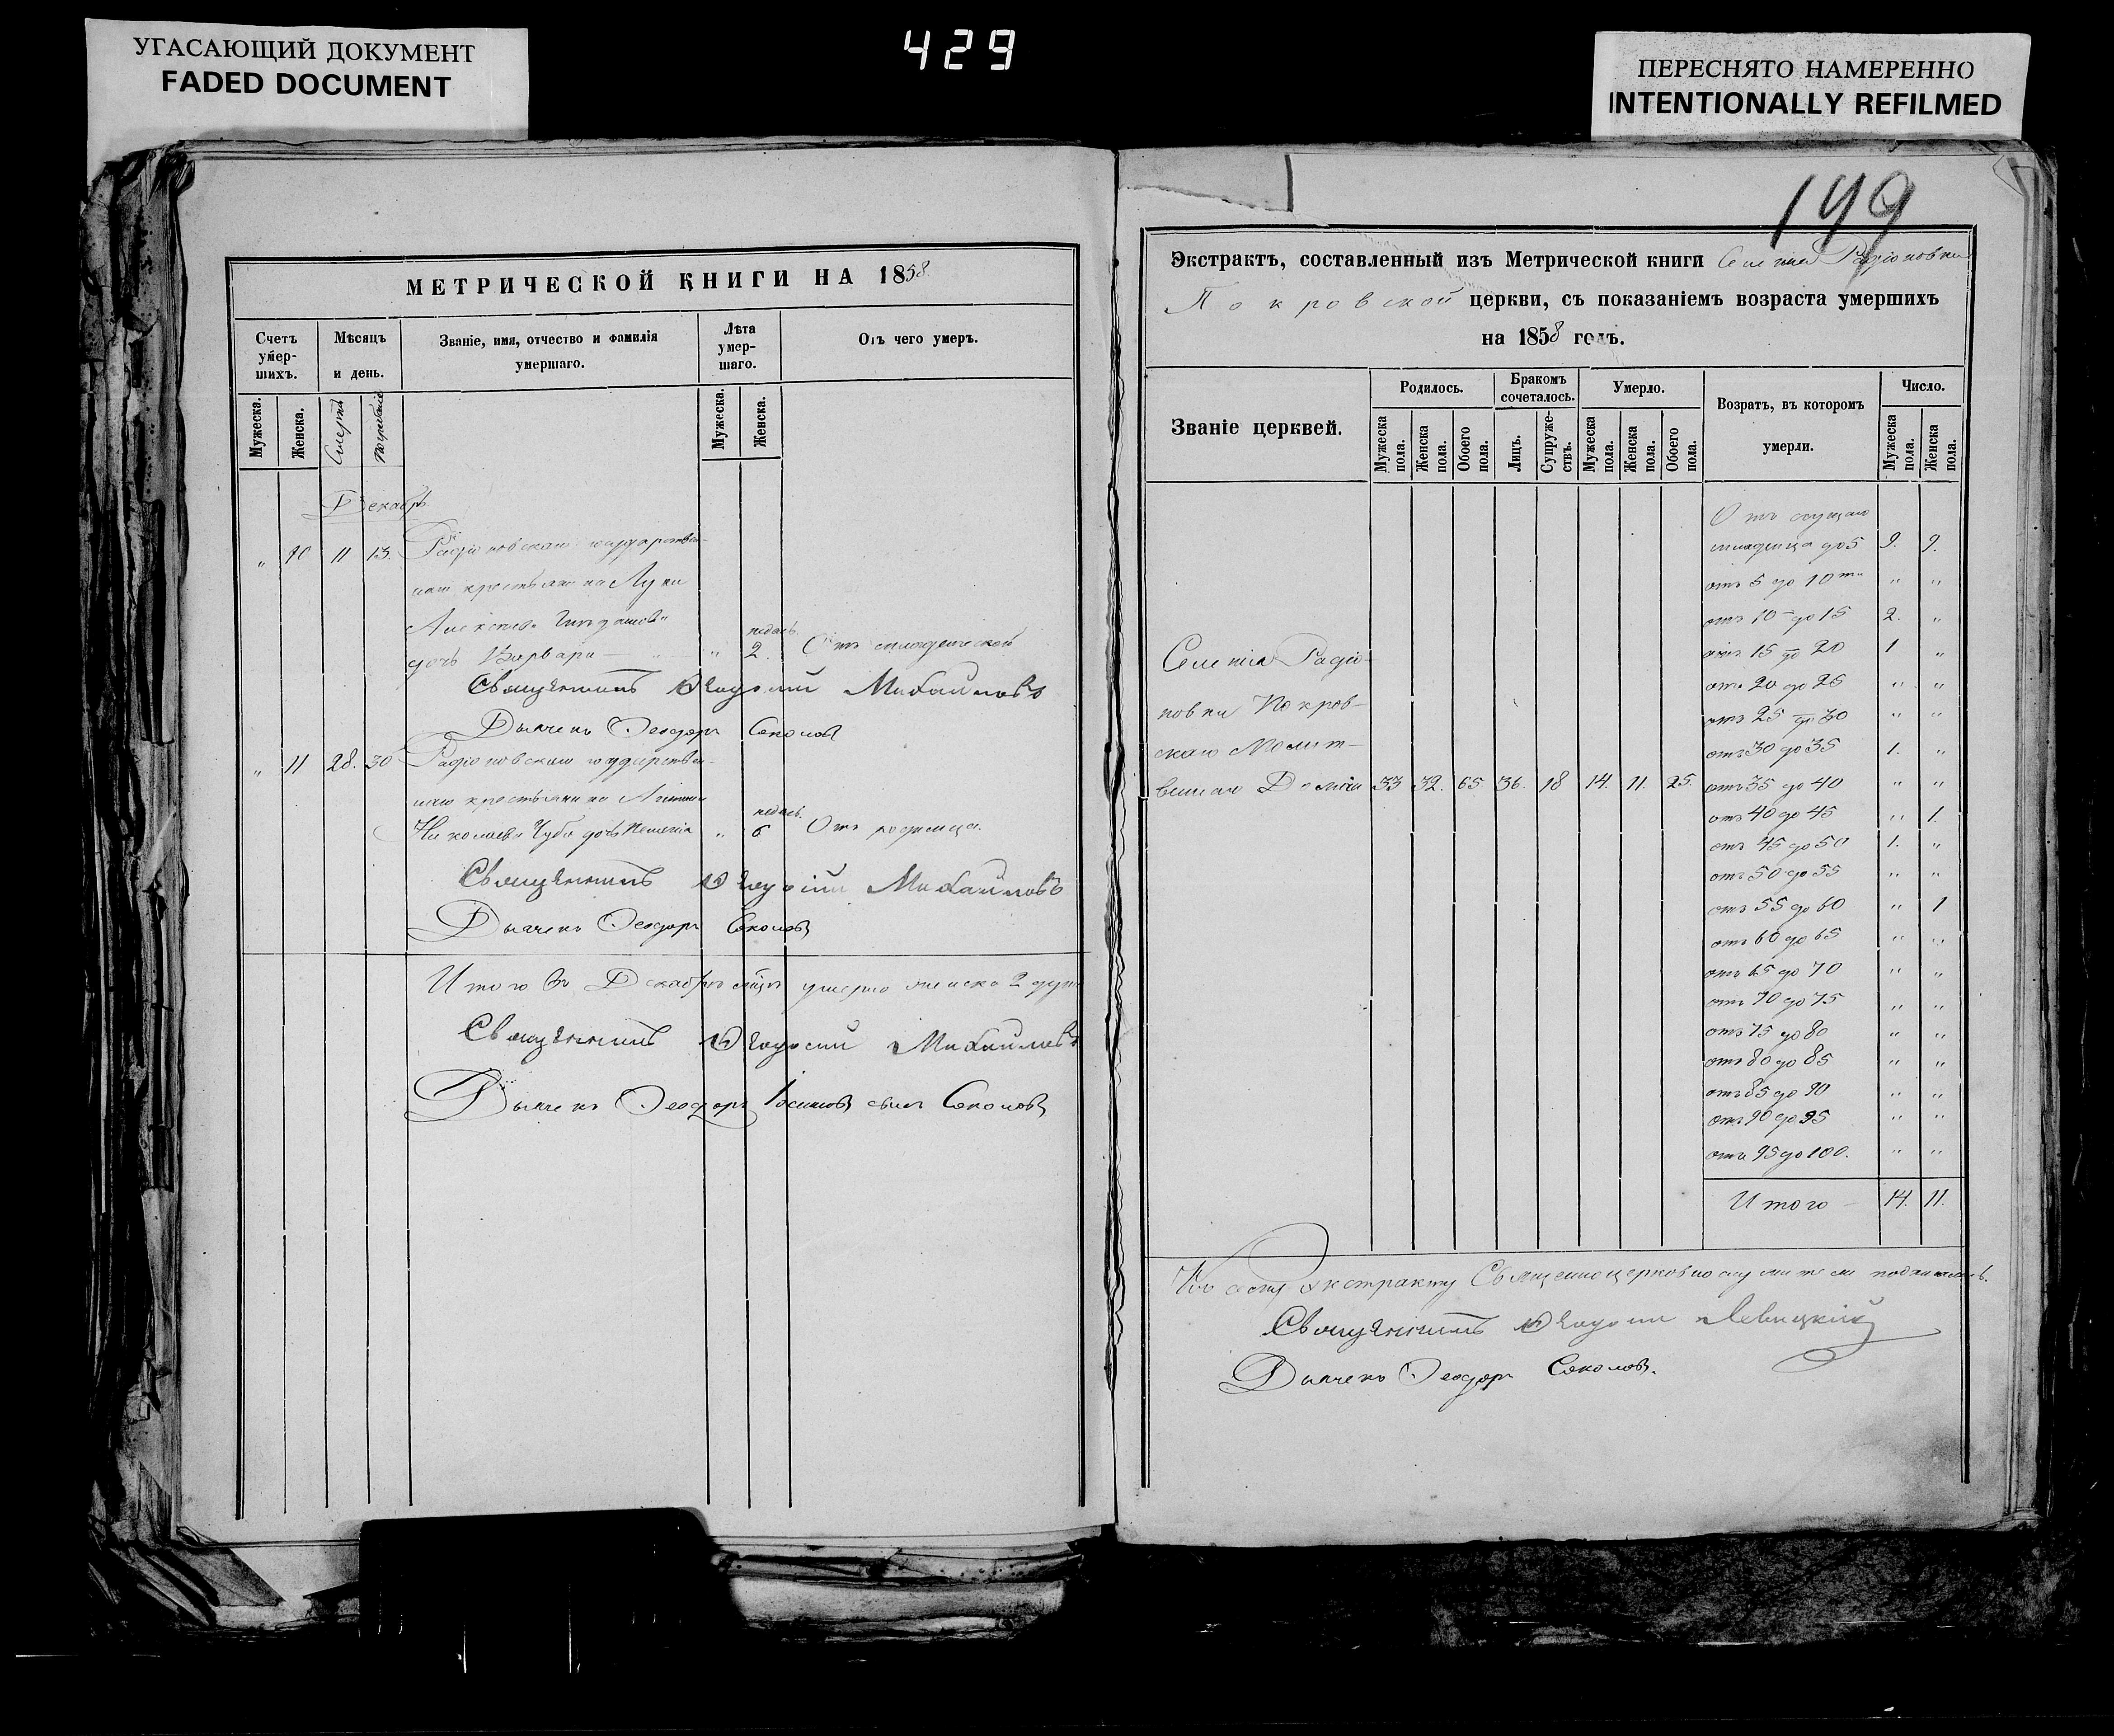 УГАСАЮЩИЙ ДОКУМЕНТ
FADED DOCUMENT
429
ПЕРЕСНЯТО НАМЕРЕННО
INTENTIONALLY REFILMED
МЕТРИЧЕСКОЙ КНИГИ НА 1858
Счетъ умер-шихъ.
Мѣсяцъ и день.
Званіе, имя, отчество и фамилія умершаго.
Лѣта умер-шаго.
Отъ чего умеръ.
Мужеска.
Женска.
Смерти
Погребенія
Мужеска.
Женска.
Декабрь
" 10 11 13. Радіоновскаго государствен-
наго крестьянина Луки
Алексѣева
недѣль
дочь Варвара " 2. Отъ младенческой
Священникъ Михайловъ
Дьячекъ Ѳеодоръ Соколовъ
" 11 28. 30 Радіоновскаго государствен-
наго крестьянина
недѣль
Николаева Чуба дочь " 6 Отъ родимца.
Священникъ Михайловъ
Дьячекъ Ѳеодоръ Соколовъ
Итого въ Декабрѣ мѣсяцѣ умерло женска 2 души
Священникъ Михайловъ
Дьячекъ Ѳеодоръ сынъ Соколовъ
149
Экстрактъ, составленный изъ Метрической книги Селенія Радіоновки
Покровской церкви, съ показаніемъ возраста умершихъ
на 1858 годъ.
Званіе церквей.
Родилось.
Бракомъ сочеталось.
Умерло.
Возрать, въ которомъ умерли.
Число.
Мужеска пола.
Женска пола.
Обоего пола.
Лицъ.
Супруже-ствъ.
Мужеска пола.
Женска пола.
Обоего пола.
Мужеска пола.
Женска пола.
Селенія Радіо-
новки Покров-
скаго Молит-
веннаго Дома 33 32. 65. 36. 18 14. 11. 25.
Отъ сущаго
младенца до 5 9. 9.
отъ 5 до 10ти " "
отъ 10 до 15 2. "
отъ 15 до 20 1 "
отъ 20 до 25 " "
отъ 25 до 30 " "
отъ 30 до 35 1. "
отъ 35 до 40 " "
отъ 40 до 45 " 1.
отъ 45 до 50 1. "
отъ 50 до 55 " "
отъ 55 до 60 " 1
отъ 60 до 65 " "
отъ 65 до 70 " "
отъ 70 до 75 " "
отъ 75 до 80 " "
отъ 80 до 85 " "
отъ 85 до 90 " "
отъ 90 до 95 " "
отъ 95 до 100. " "
Итого 14. 11.
Къ сему экстракту Священноцерковнослужители подписались.
Священникъ Левицкій
Дьячекъ Ѳеодоръ Соколовъ.